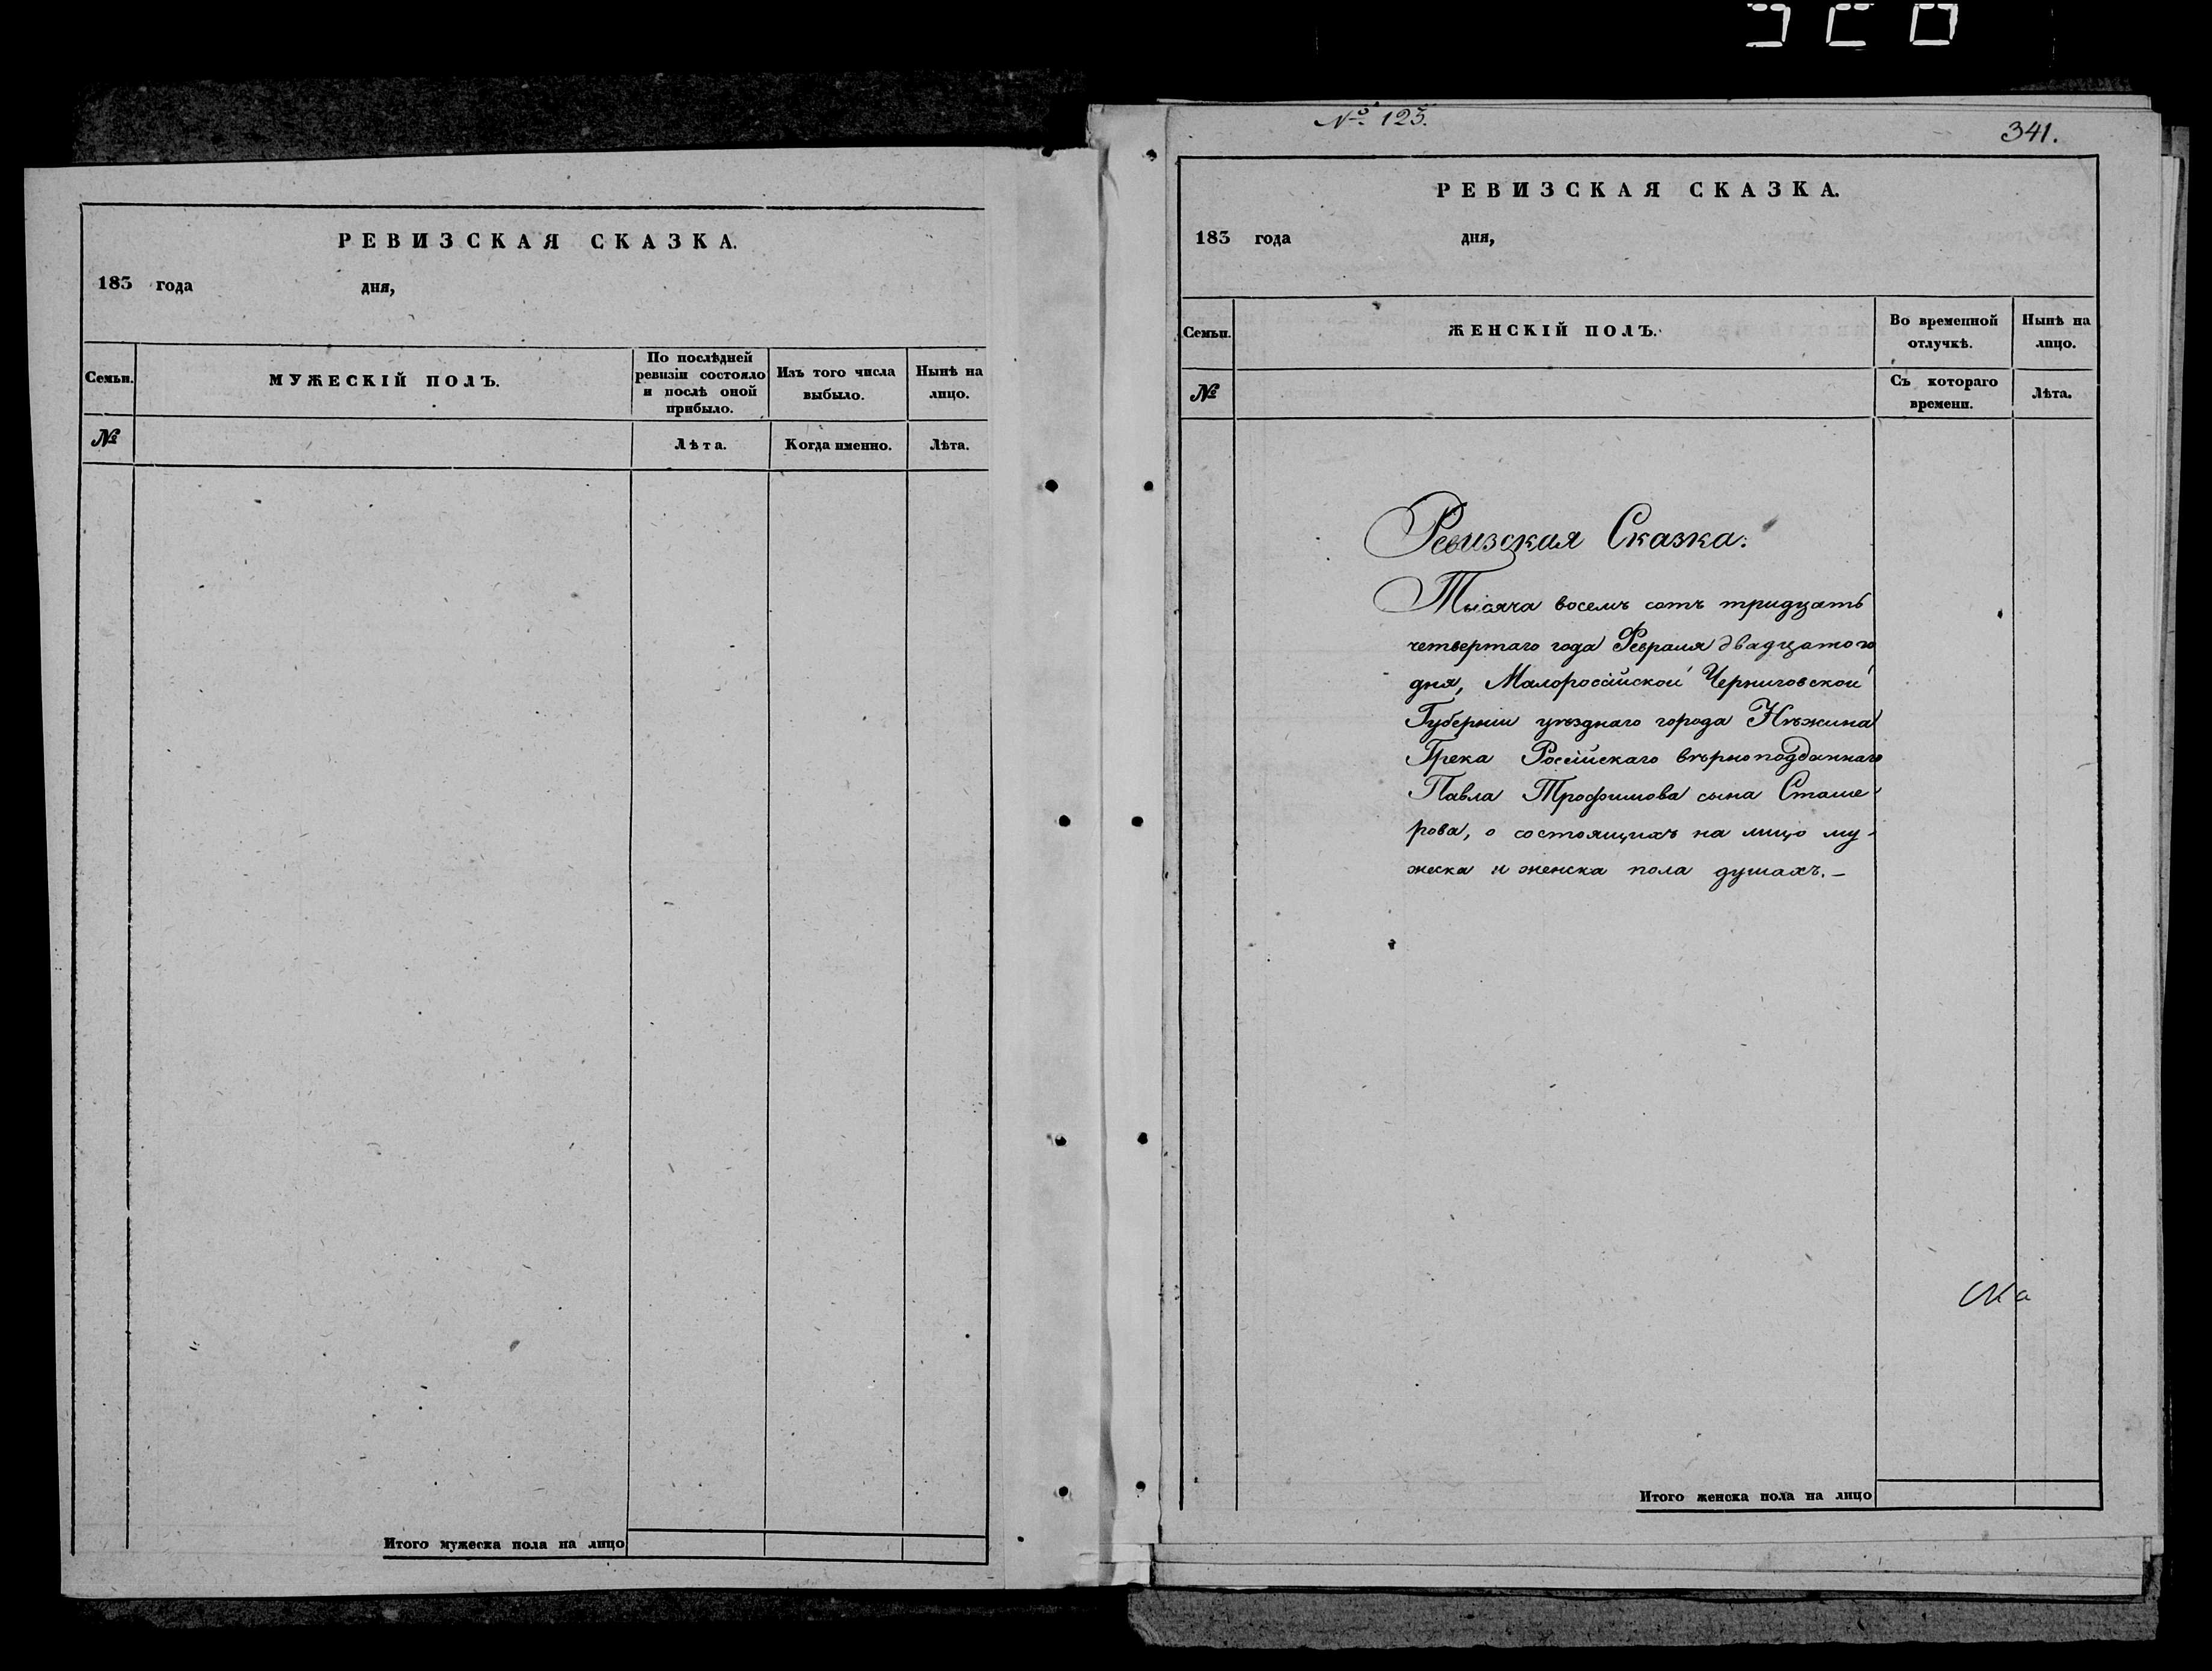 РЕВИЗСКАЯ СКАЗКА.
183 года дня,
Семьи.
МУЖЕСКІЙ ПОЛЪ.
По послѣдней
ревизіи состояло
и послѣ оной
прибыло.
Изъ того числа
выбыло.
Нынѣ на
лицо.
№
Лѣта.
Когда именно.
Лѣта.
Итого мужеска пола на лицо
№ 123.
341.
РЕВИЗСКАЯ СКАЗКА.
183 года дня,
Семьи.
ЖЕНСКІЙ ПОЛЪ.
Во временной
отлучкѣ.
Нынѣ на
лицо.
№
Съ котораго
времени.
Лѣта.
Ревизская Сказка.
Тысяча восемъ сотъ тридцать
четвертаго года Февраля двадцатого
дня, Малоросійской Черниговской
Губерніи уѣзднаго города Нѣжина
Грека Російскаго вѣрноподданнаго
Павла Трофимова сына Сташе-
рова, о состоящихъ на лицо му-
жеска и женска пола душахъ.—
Итого женска пола на лицо